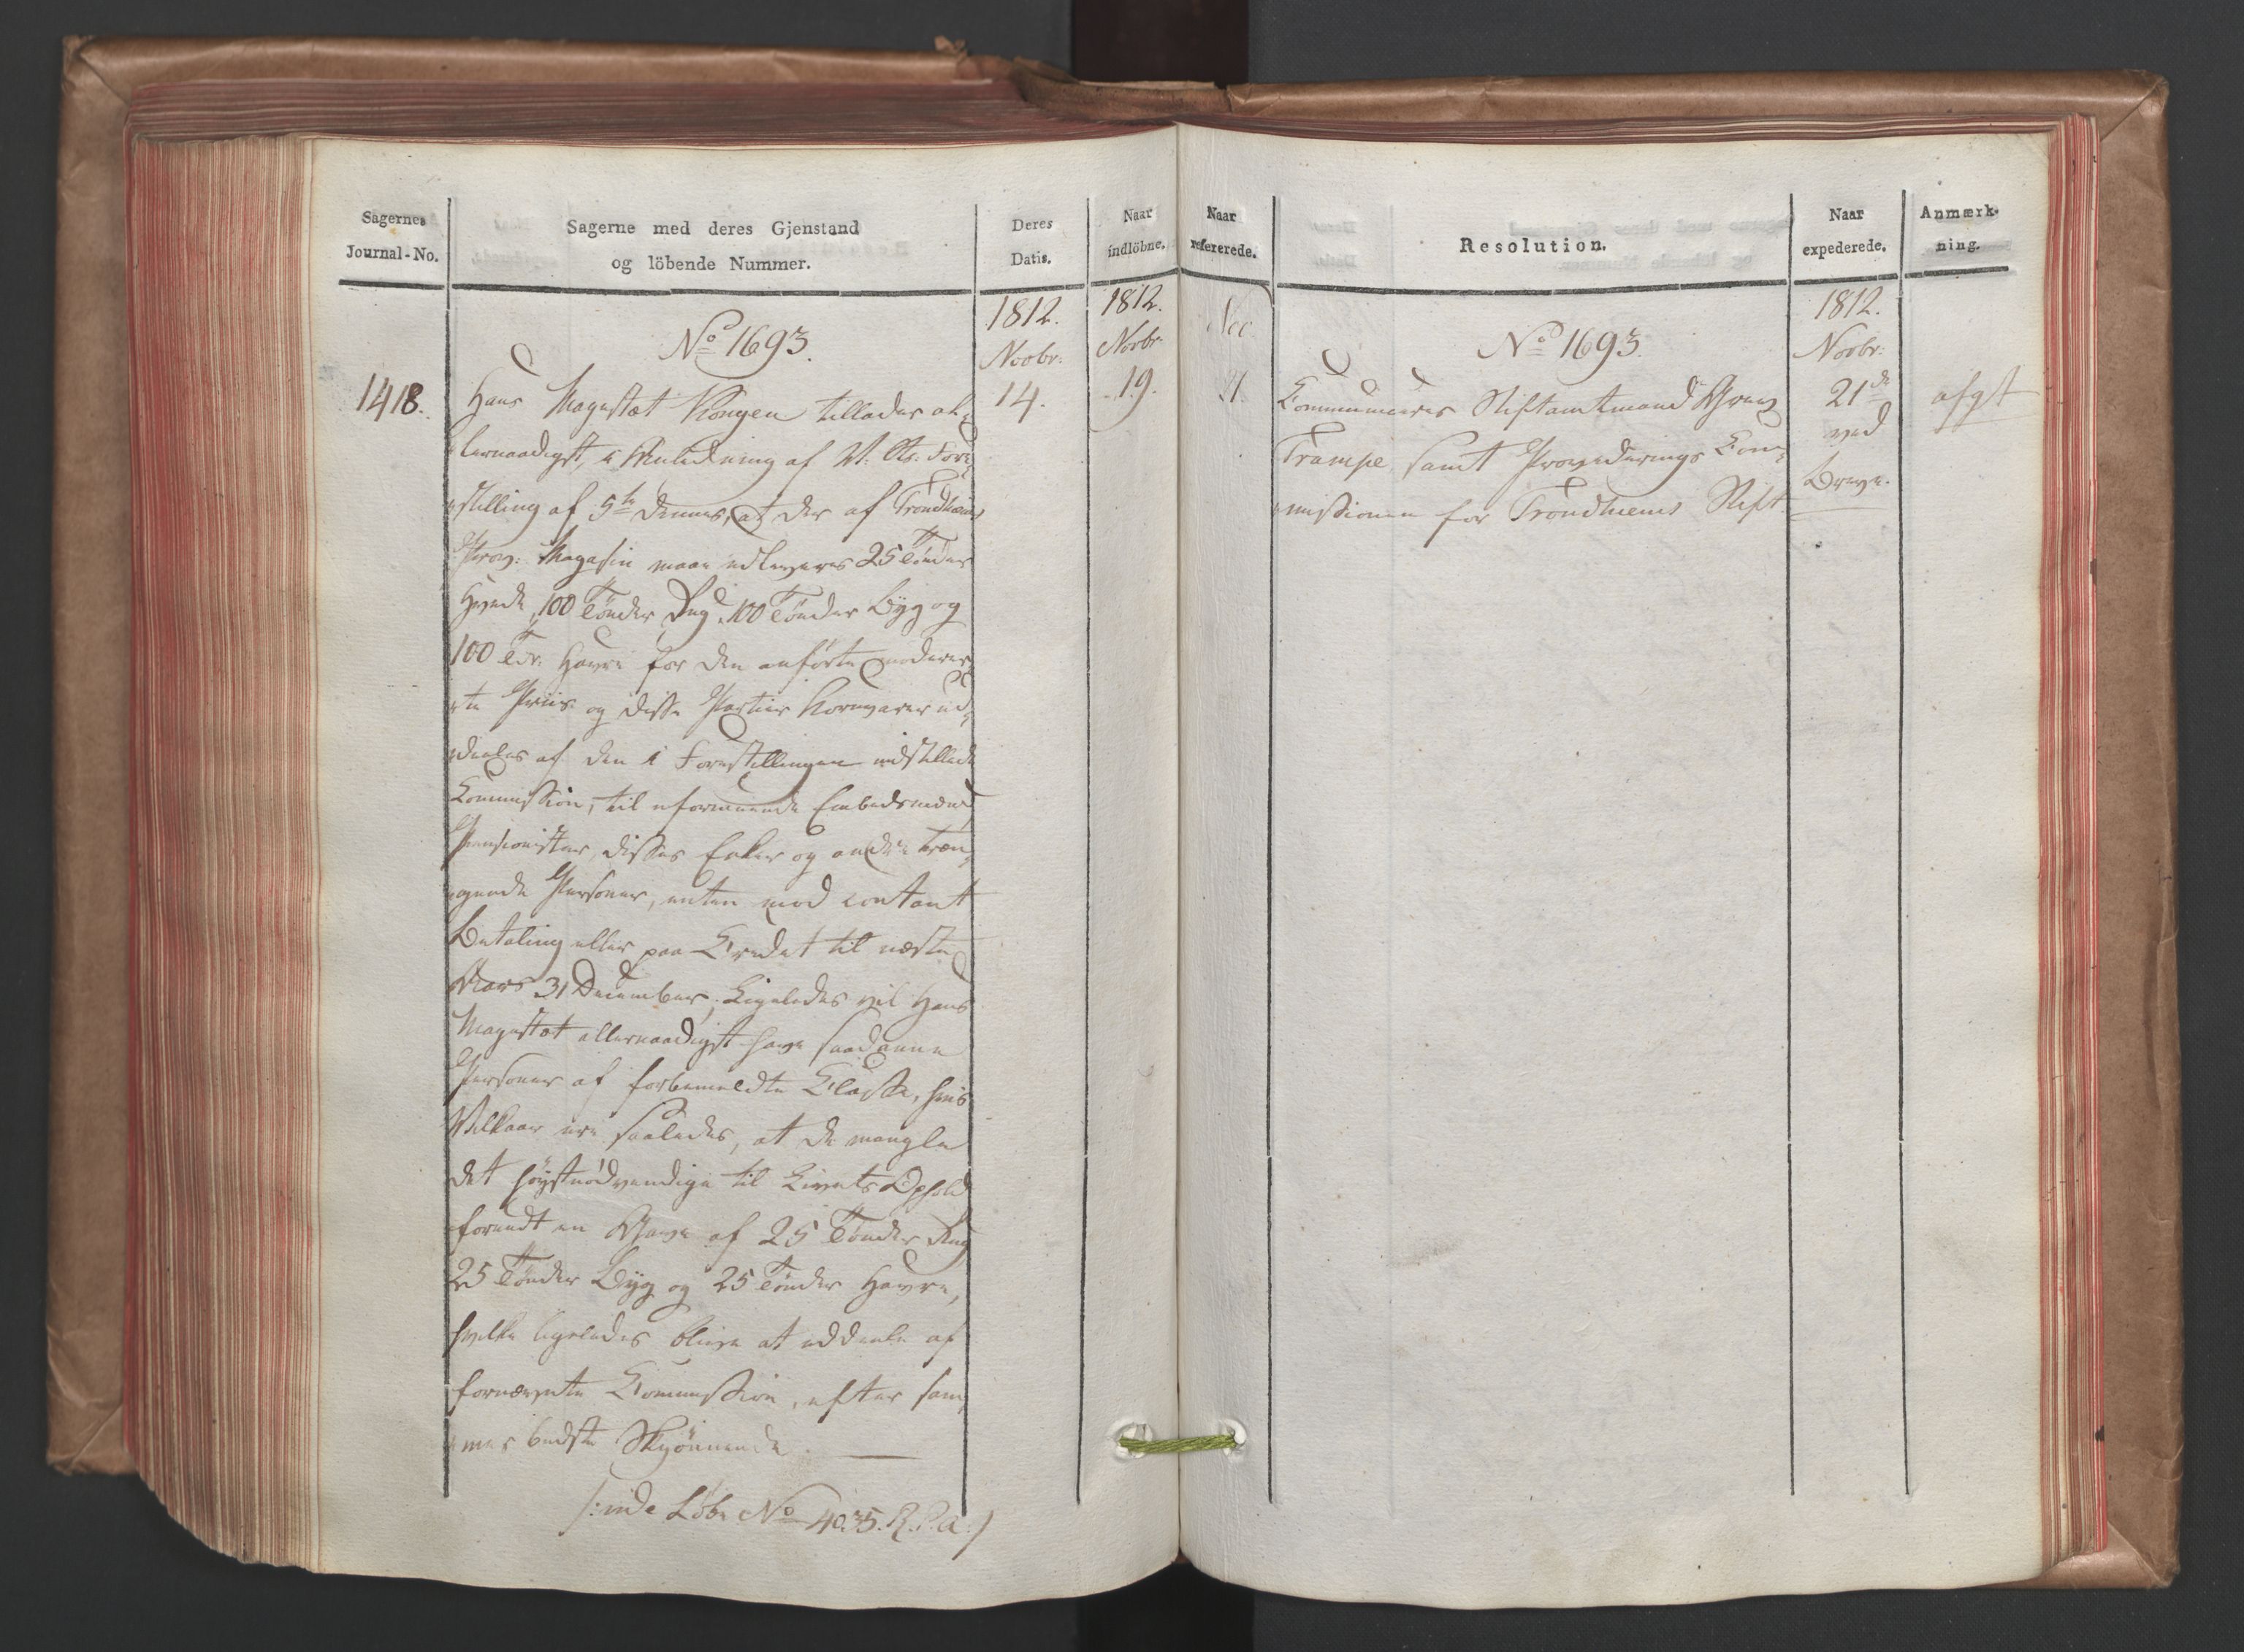 Sagernes
Journal-No.
Sagerne med deres Gjenstand
og löbende Nummer.
Deres
Datis.
Naar
indlöbne.
1812.
Novbr:
1812.
Novbr:
No 1693.
1418.
14.
19.
Hans Magestæt Kongen tillader al-
lernaadigst, i Anledning af N: Cs: Fore-
stilling af 5te dennes, at der af Trondhiems
Prov: Magasin maae udleveres 25 Tönder
Hvede, 100 Tönder Rug, 100 Tönder Byg og
100 Tdr. Havre for den anförte moderer-
te Priis og disse Partier Kornvarer ud-
deeles af den i Forestillingen indstillede
Commission, til uformuende Embedsmænd,
Pensionister, disses Enker og andre træn-
gende Personer, enten mod contant
Betaling eller paa Credit til næste
Aars 31 December; Ligeledes vil Hans
Magestæt allernaadigst have saadanne
Personer af forbemeldte Classe, hvis
Vilkaar ere saaledes, at de mangle
det höystnödvendige til Livets Ophold
forundt en Gave af 25 Tönder Rug
25 Tönder Byg og 25 Tönder Havre,
hvilke ligeledes blive at uddeele af
fornævnte Commission, efter sam-
mes bedste Skjönnende.
/: inde Löbe No 4035. R. P. A :/
Naar
refererede.
Resolution.
Naar
expederede.
Anmærk-
ning.
1812.
Novbr:
No 1693.
21
Communiceres Stiftamtmand Grev
Trampe, samt Provederings Com-
missionen for Trondhiems Stift.
21de
ved
Breve.
afgt